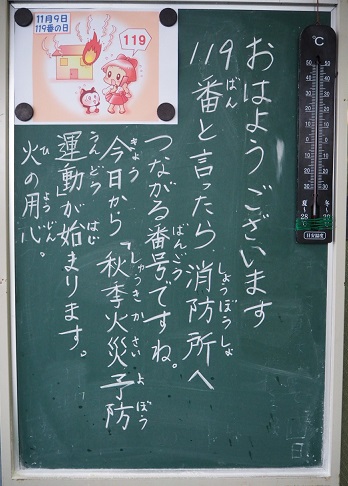 11月9日
119番の日
119
おはようございます
119番と言ったら、消防所へ
つながる番号ですね。
今日から「秋季火災予防
運動が始まります。
火の用心。
ばん
しょうぼうしょ
ばんごう
きょう
しゅうきかさいよぼう
うんどう
はじ
ひ
ようじん
℃
夏
28
冬
20